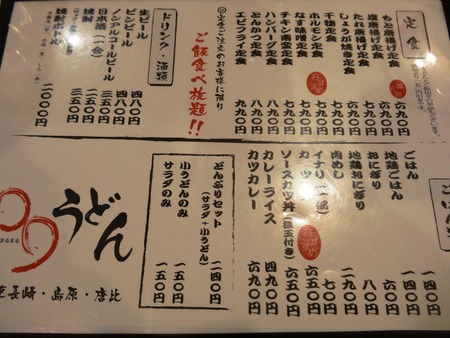 定食
もも唐揚げ定食 六九〇円
塩唐揚げ定食 七九〇円
たれ唐揚げ定食 七九〇円
しょうが焼き定食 七九〇円
干物定食 七九〇円
ホルモン定食 七九〇円
なす味噌定食 七九〇円
チキン南蛮定食 七九〇円
ハンバーグ定食 八九〇円
とんかつ定食 八九〇円
エビフライ定食 九九〇円
◎定食ご注文のお客様に限り
ご飯食べ放題!!
ドリンク・酒類
生ビール 四八〇円
ビンビール 四八〇円
ノンアルコールビール 三五〇円
日本酒(一合) 三五〇円
焼酎
焼酎ボトル 二〇〇〇円
ごはん
ごはん 一四〇円
地鶏ごはん 一四〇円
おにぎり
地鶏おにぎり
肉めし 二九〇円
イナリ
カツ
ソースカツ丼(目玉付き) 六五〇円
カレーライス 四九〇円
カツカレー 六九〇円
どんぶりセット 二四〇円
(サラダ+小うどん)
小うどんのみ 一五〇円
サラダのみ 一五〇円
うどん
まるまる
長崎・島原・唐比